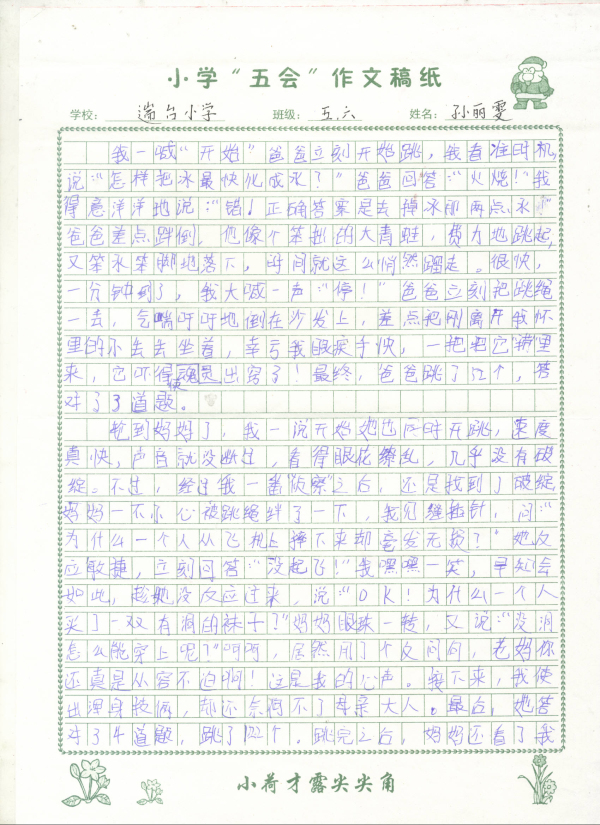 小学“五会”作文稿纸
学校：瑞台小学 班级：五.六 姓名：孙丽雯
我一喊“开始”爸爸立刻开始跳，我看准时机，
说：“怎样把冰最快化成水？”爸爸回答：“火烧！”我
得意洋洋地说：“错！正确答案是去掉冰那两点水”
爸爸差点跌倒，他像个笨拙的大青蛙，费力地跳起，
又笨水笨脚地落下，时间就这么悄然蹓走。很快，
一分钟到了，我大喊一声“停！”爸爸立刻把跳绳
一去，气喘吁吁地倒在沙发上，差点把刚离开我怀
里的小去去坐着，幸亏我眼疾手快，一把把它搂里
来，它吓得魂是出窍了！最终，爸爸跳了72个，答
对了3道题。
轮到妈妈了，我一说开始她也同时开跳，速度
真快，声音就没断过，看得眼花缭乱，几乎没有破
绽。不过，经过我一番“侦察”之后，还是找到了破绽
妈妈一不小心被跳绳绊了一下，我见缝插针，问：“
为什么一个人从飞机上摔下来却毫发无损？”她反
应敏捷，立刻回答：“没起飞！”我嘿嘿一笑，早知会
如此，趁她没反应过来，说：“OK！为什么一个人
买了一双有洞的袜子？”妈妈眼珠一转，又说：“没洞
怎么能穿上呢？”呵呵，居然用了个反问句，老妈你
还真是从容不迫啊！这是我的心声。接下来，我使
出浑身技俩，却还奈何不了母亲大人。最后，她答
对了4道题，跳了122个。跳完之后，妈妈还看了我
小荷才露尖尖角